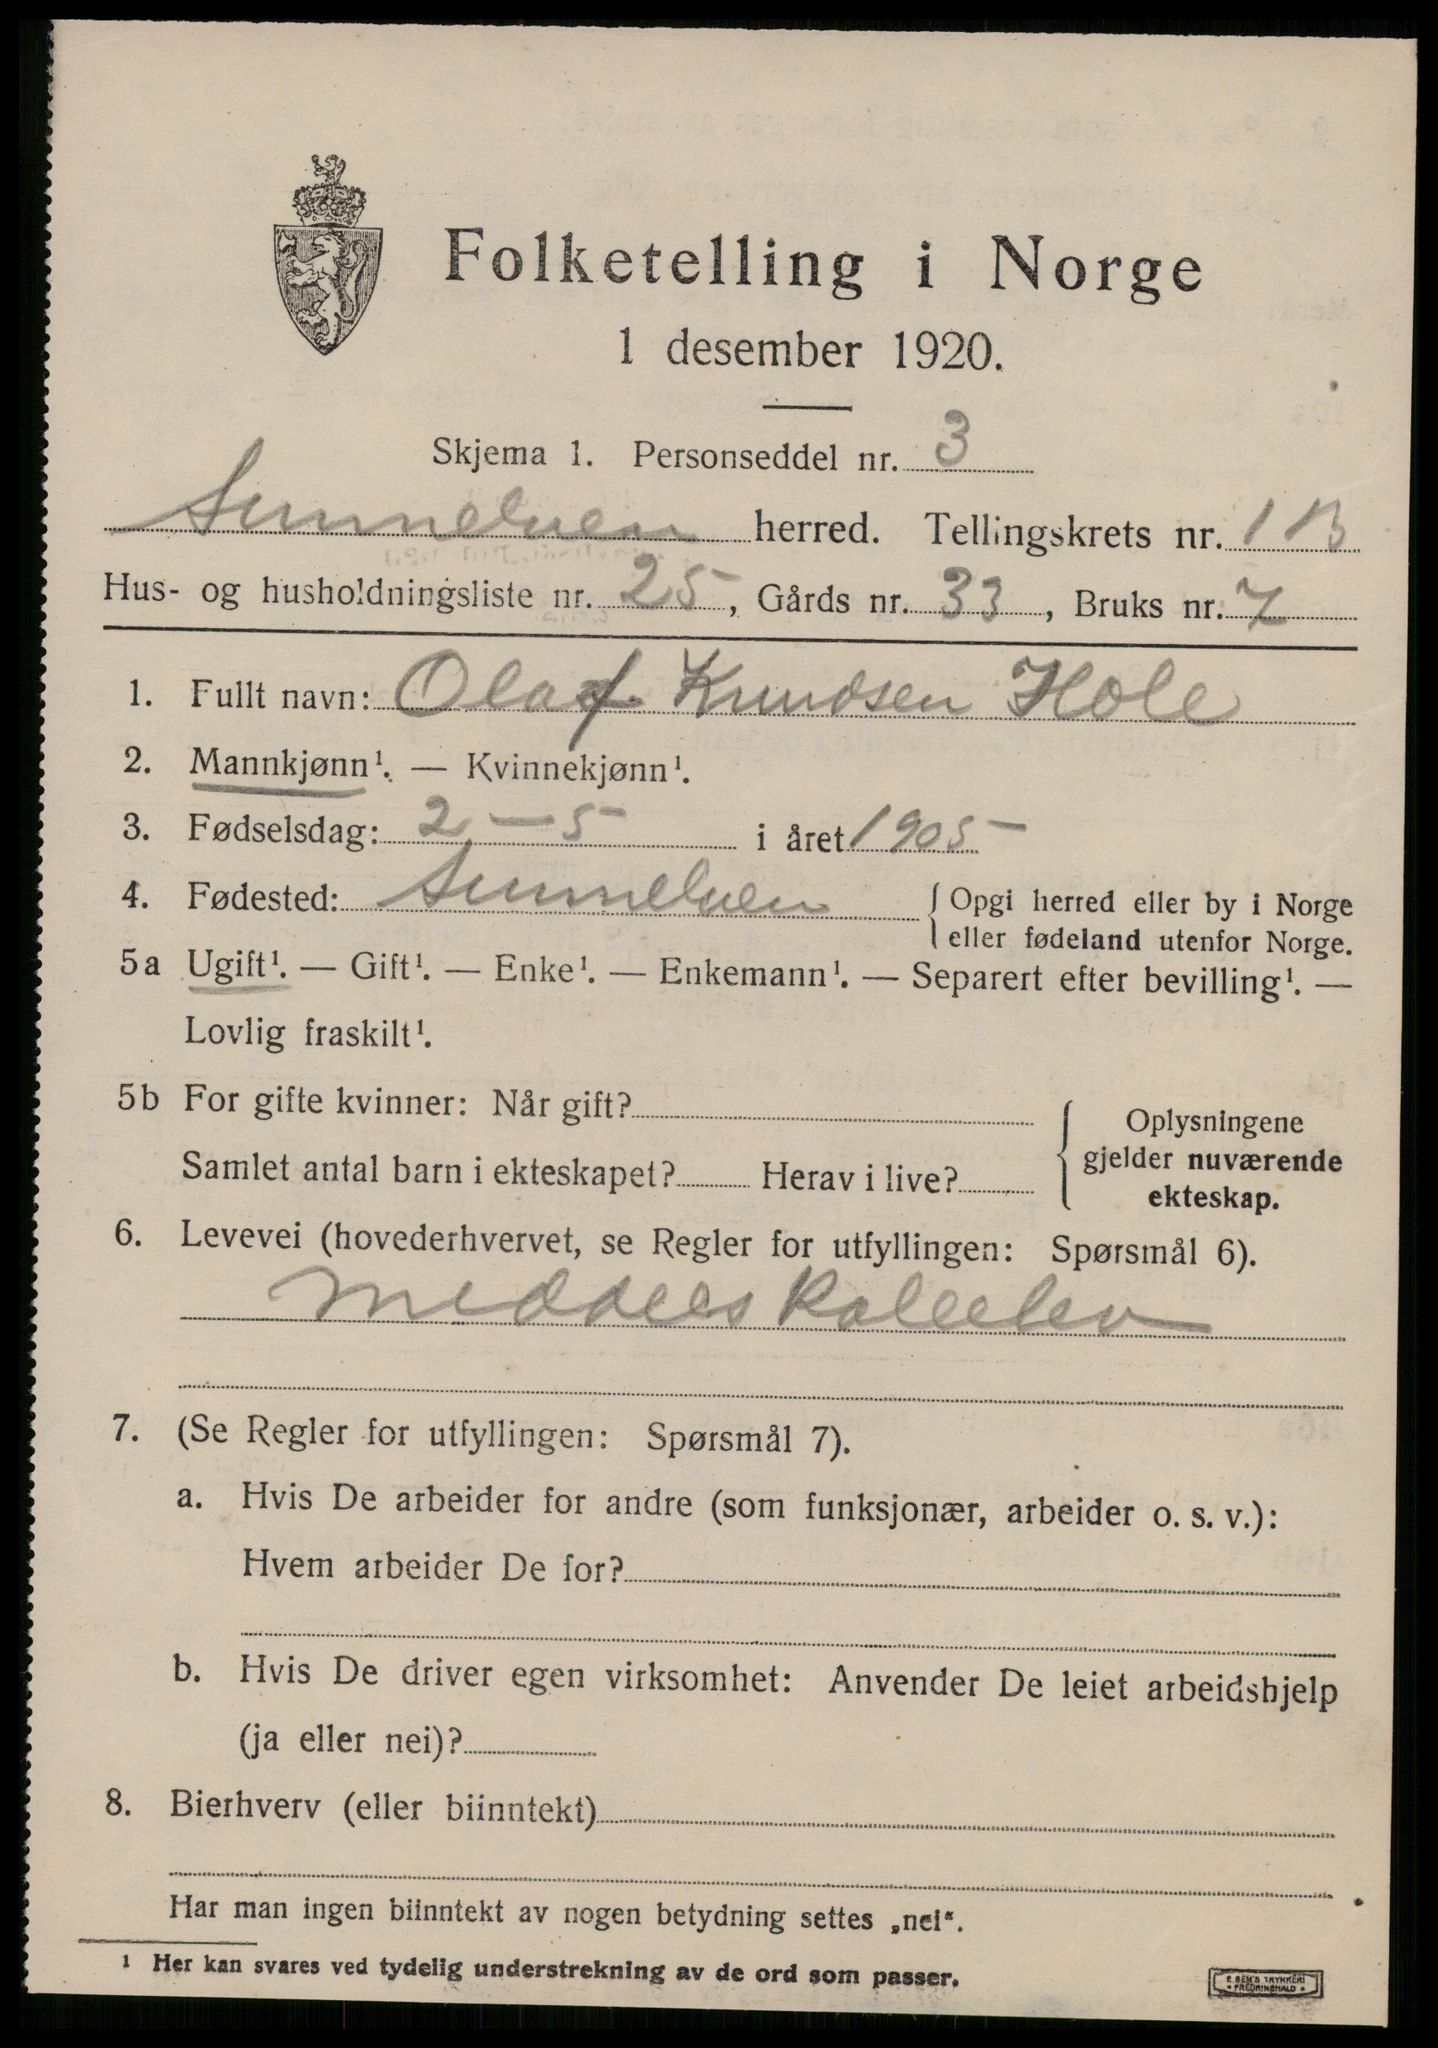 Folketelling i Norge
1 desember 1920.
Skjema 1. Personseddel nr. 3
Sunnelven herred. Tellingskrets nr. 1 B
Hus- og husholdningsliste nr. 25, Gårds nr. 33, Bruks nr. 7
1. Fullt navn: Olaf Knudsen Hole
2. Mannkjønn¹. — Kvinnekjønn¹.
3. Fødselsdag: 2 - 5 i året 1905
4. Fødested: Sunnelven { Opgi herred eller by i Norge
eller fødeland utenfor Norge.
5a Ugift¹. — Gift¹. — Enke¹. — Enkemann¹. — Separert efter bevilling¹. —
Lovlig fraskilt¹.
5b For gifte kvinner: Når gift?
Samlet antal barn i ekteskapet? Herav i live?
Oplysningene
gjelder nuværende
ekteskap.
6. Levevei (hovederhvervet, se Regler for utfyllingen: Spørsmål 6).
Middelskoleelev
7. (Se Regler for utfyllingen: Spørsmål 7).
a. Hvis De arbeider for andre (som funksjonær, arbeider o. s. v.):
Hvem arbeider De for?
b. Hvis De driver egen virksomhet: Anvender De leiet arbeidshjelp
(ja eller nei)?
8. Bierhverv (eller biinntekt)
Har man ingen biinntekt av nogen betydning settes „nei“.
¹ Her kan svares ved tydelig understrekning av de ord som passer.
E. SEM'S TRYKKERI
FREDRIKSHALD